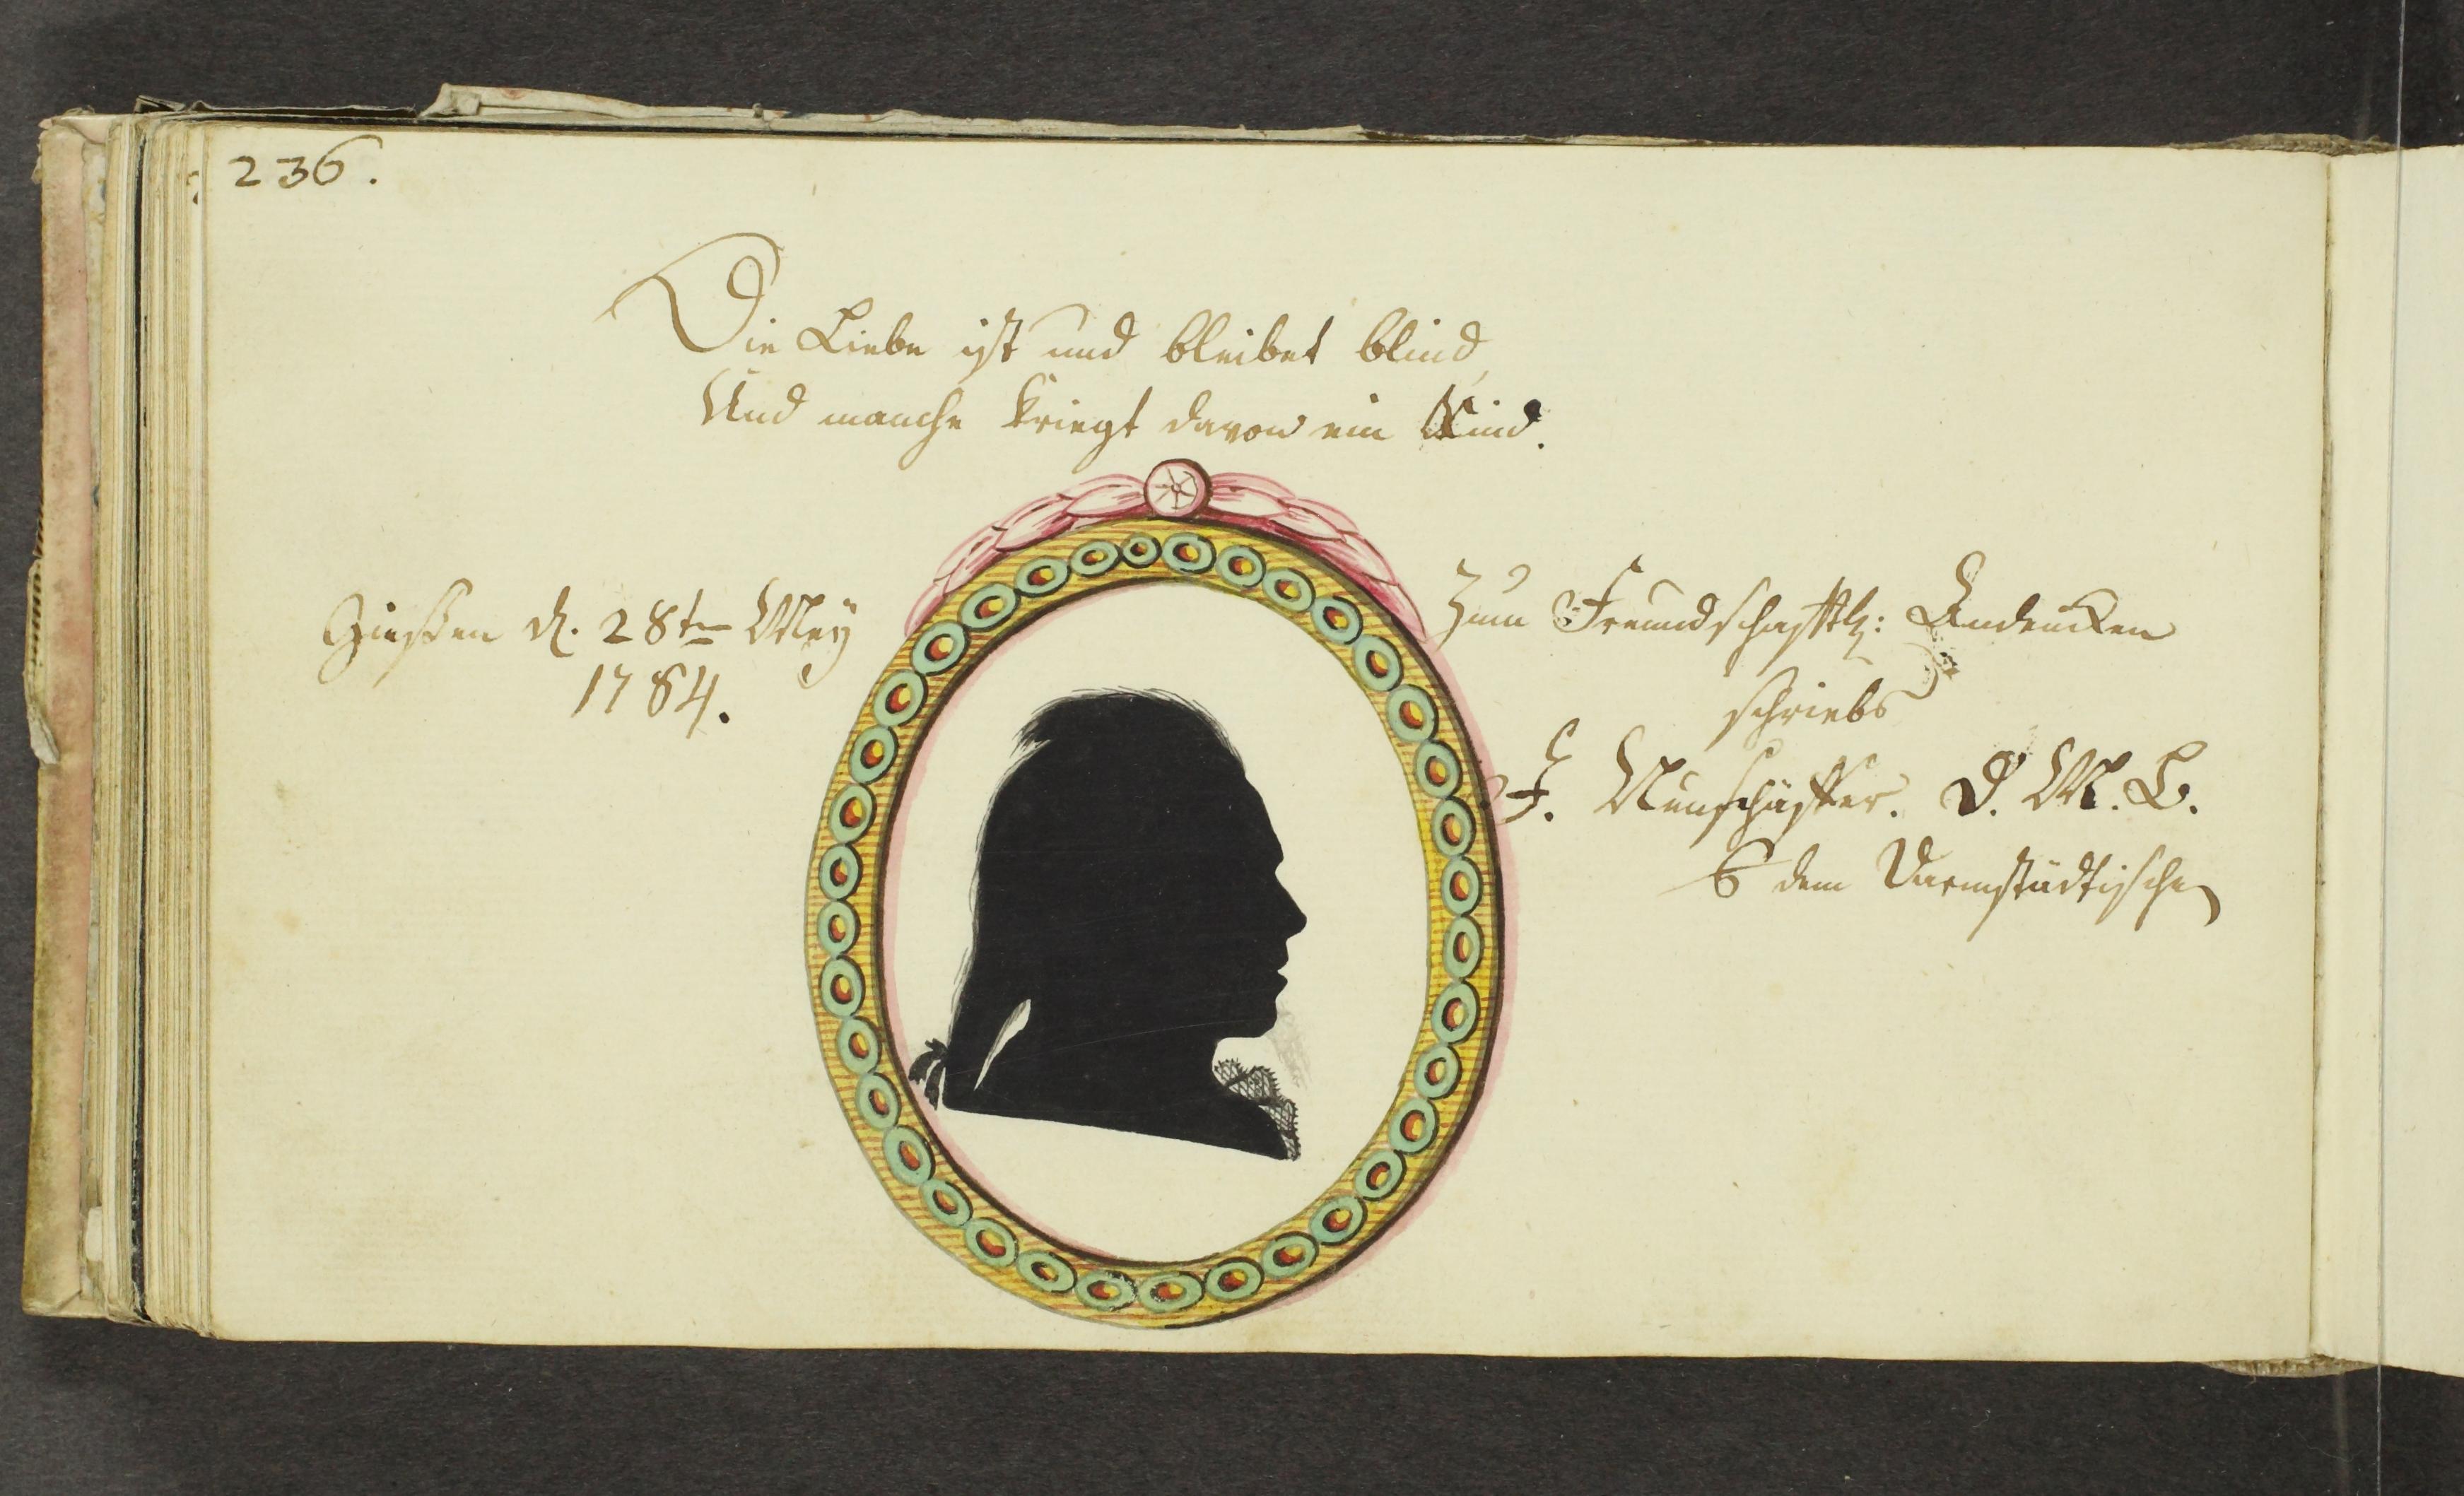 236.
Die Liebe ist und bleibet blind,
Und manche kriegt davon ein Kind.
Giessen d. 28ten Mey
1784.
Zum Freundschafftl: Andencken
schriebs
F. Neuschäffer. D. M. B.
dem Darmstädtischen